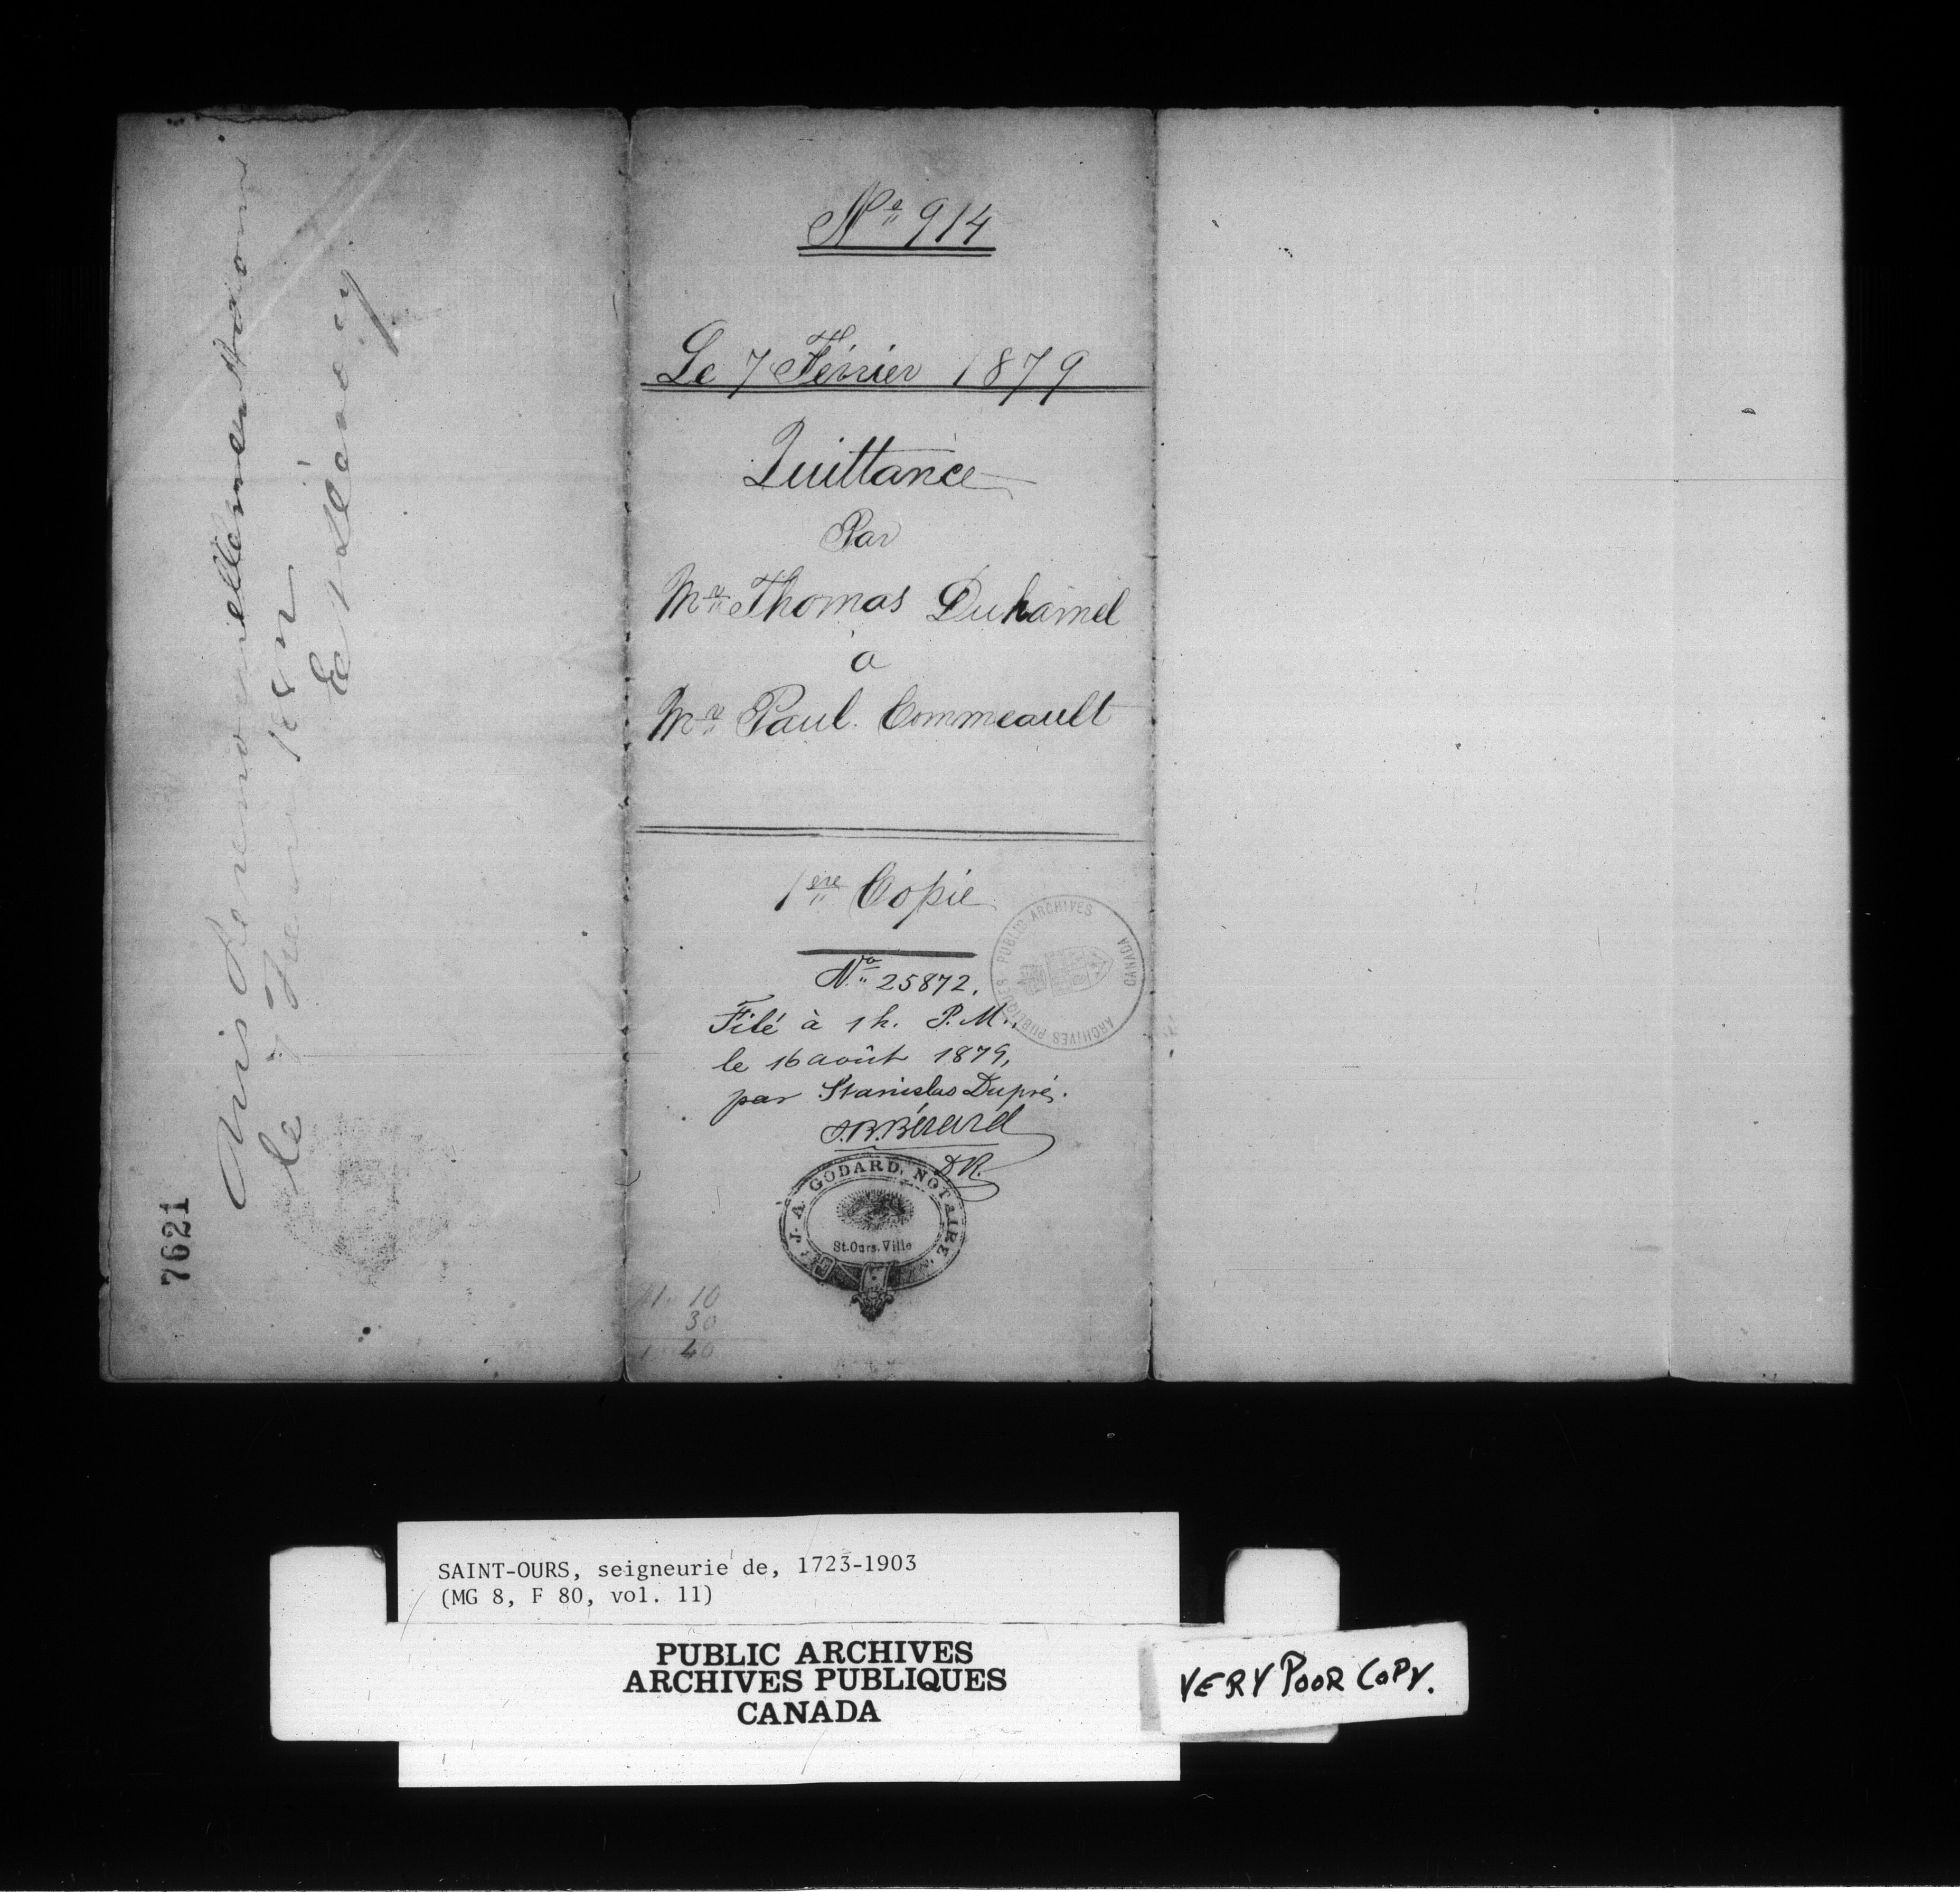 No 914
Le 7 Février 1879
Quittance
Par
Mr Thomas Duhamel
à
Mr Paul. Commeault
1ère Copie
No 25872.
Filé à 1 h. P. M.,
le 16 août 1879,
par Stanislas Dupré.
J.B. Bérard
D R.
J. A. GODARD, NOTAIRE
St. Ours. Ville
PUBLIC ARCHIVES CANADA
ARCHIVES PUBLIQUES
1. 10
30
1 40
le 7
7621
SAINT-OURS, seigneurie de, 1723-1903
(MG 8, F 80, vol. 11)
PUBLIC ARCHIVES
ARCHIVES PUBLIQUES
CANADA
VERY POOR COPY.